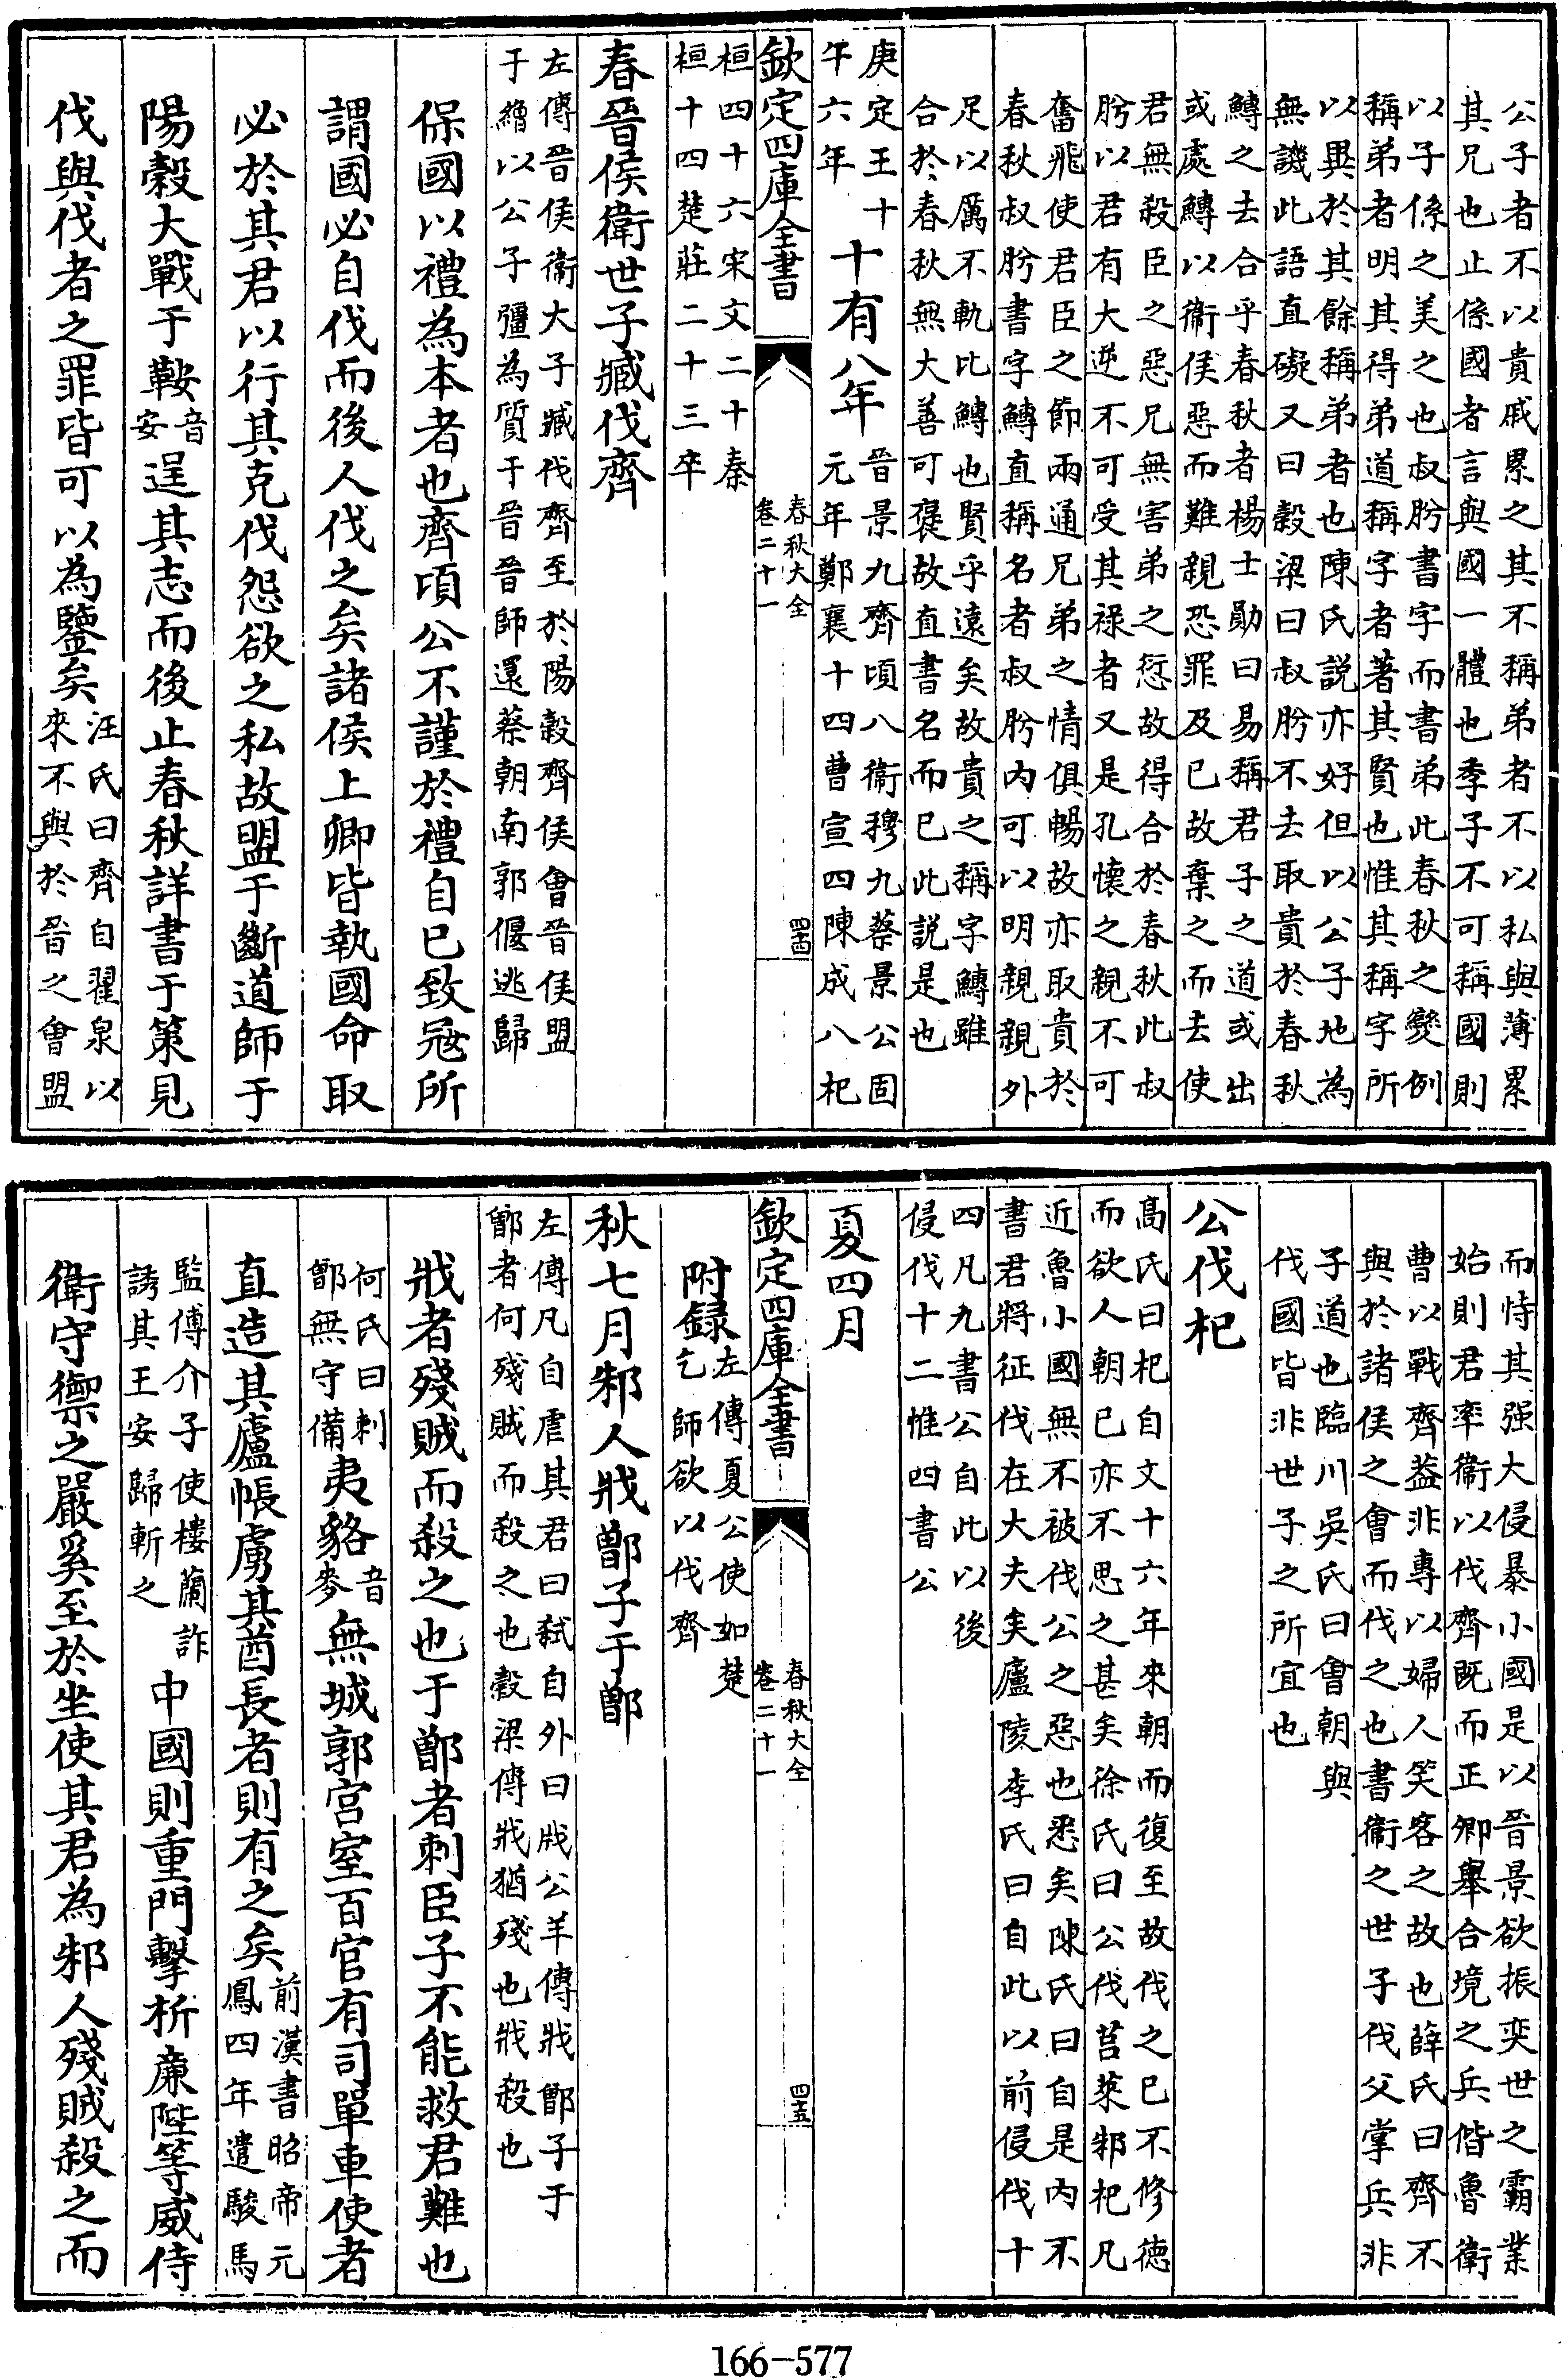 公子者不以貴戚累之其不稱弟者不以私與薄累
其兄也止係國者言與國一體也季子不可稱國則
以子係之美之也叔肸書字而書弟此春秋之變例
稱弟者明其得弟道稱字者著其賢也惟其稱字所
以異於其餘稱弟者也陳氏説亦好但以公子地為
無譏此語直礙又曰穀梁曰叔肸不去取貴於春秋
鱄之去合乎春秋者楊士勛曰易稱君子之道或出
或處鱄以衞侯惡而難親恐罪及已故棄之而去使
君無殺臣之惡兄無害弟之愆故得合於春秋此叔
肸以君有大逆不可受其祿者又是孔懷之親不可
奮飛使君臣之節兩通兄弟之情俱暢故亦取貴於
春秋叔肸書字鱄直稱名者叔肸内可以明親親外
足以厲不軌比鱄也賢乎遠矣故貴之稱字鱄雖
合於春秋無大善可襃故直書名而已此説是也
庚定王十
午六年
十有八年
晉景九齊頃八衞穆九蔡景公固
元年鄭襄十四曹宣四陳成八杞
欽定四庫全書
春秋大全
卷二十一
四十四
桓四十六宋文二十秦
桓十四楚莊二十三卒
春晉侯衛世子臧伐齊
左傳晉侯衞大子臧伐齊至於陽穀齊侯會晉侯盟
于繒以公子彊為質于晉晉師還蔡朝南郭偃逃歸
保國以禮為本者也齊頃公不謹於禮自已致寇所
謂國必自伐而後人伐之矣諸侯上卿皆執國命取
必於其君以行其克伐怨欲之私故盟于斷道師于
陽穀大戰于鞍
音
安
逞其志而後止春秋詳書于策見
伐與伐者之罪皆可以為鑒矣
汪氏曰齊自翟泉以
來不與於晉之會盟
而恃其强大侵暴小國是以晉景欲振奕世之霸業
始則君率衞以伐齊既而正卿舉合境之兵偕魯衛
曹以戰齊益非專以婦人笑客之故也薛氏曰齊不
與於諸侯之會而伐之也書衞之世子伐父掌兵非
子道也臨川吳氏曰會朝與
伐國皆非世子之所宜也
公伐杞
髙氏曰杞自文十六年來朝而復至故伐之已不修德
而欲人朝已亦不思之甚矣徐氏曰公伐莒萊邾杞凡
近魯小國無不被伐公之惡也悉矣陳氏曰自是内不
書君將征伐在大夫矣廬陵李氏曰自此以前侵伐十
四凡九書公自此以後
侵伐十二惟四書公
夏四月
欽定四庫全書
春秋大全
卷二十一
四十五
附録
左傳夏公使如楚
乞師欲以伐齊
秋七月邾人戕鄫子于鄫
左傳凡自虐其君曰弑自外曰戕公羊傳戕鄫子于
鄫者何殘賊而殺之也穀梁傳戕猶殘也戕殺也
戕者殘賊而殺之也于鄫者刺臣子不能救君難也
何氏曰刺
鄫無守備
夷貉
音
麥
無城郭宫室百官有司單車使者
直造其廬帳虜其酋長者則有之矣
前漢書昭帝元
鳳四年遣駿馬
監傅介子使樓蘭詐
誘其王安歸斬之
中國則重門擊柝廉陛等威侍
衛守禦之嚴奚至於坐使其君為邾人殘賊殺之而
166-577